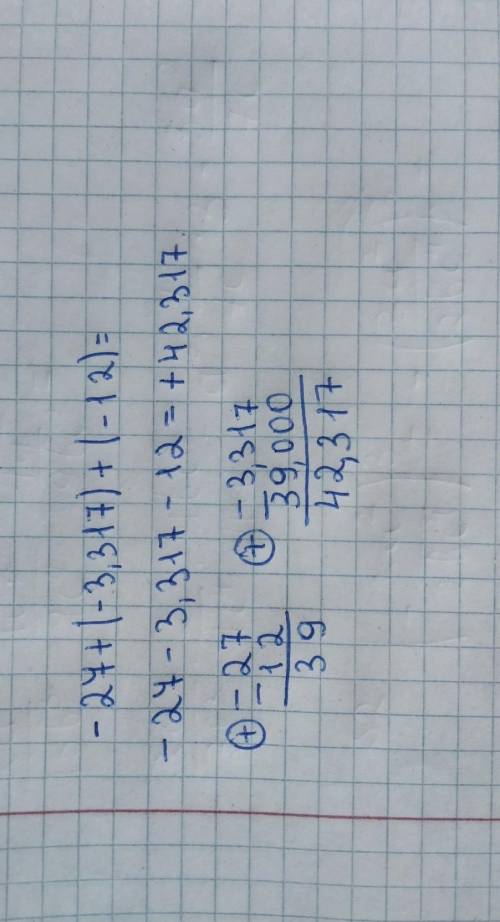 -27+(-3,317)+(-12)=
-27-3,317-12=+42,317
+ -27
-12
39
+ -3,317
-39,000
42,317